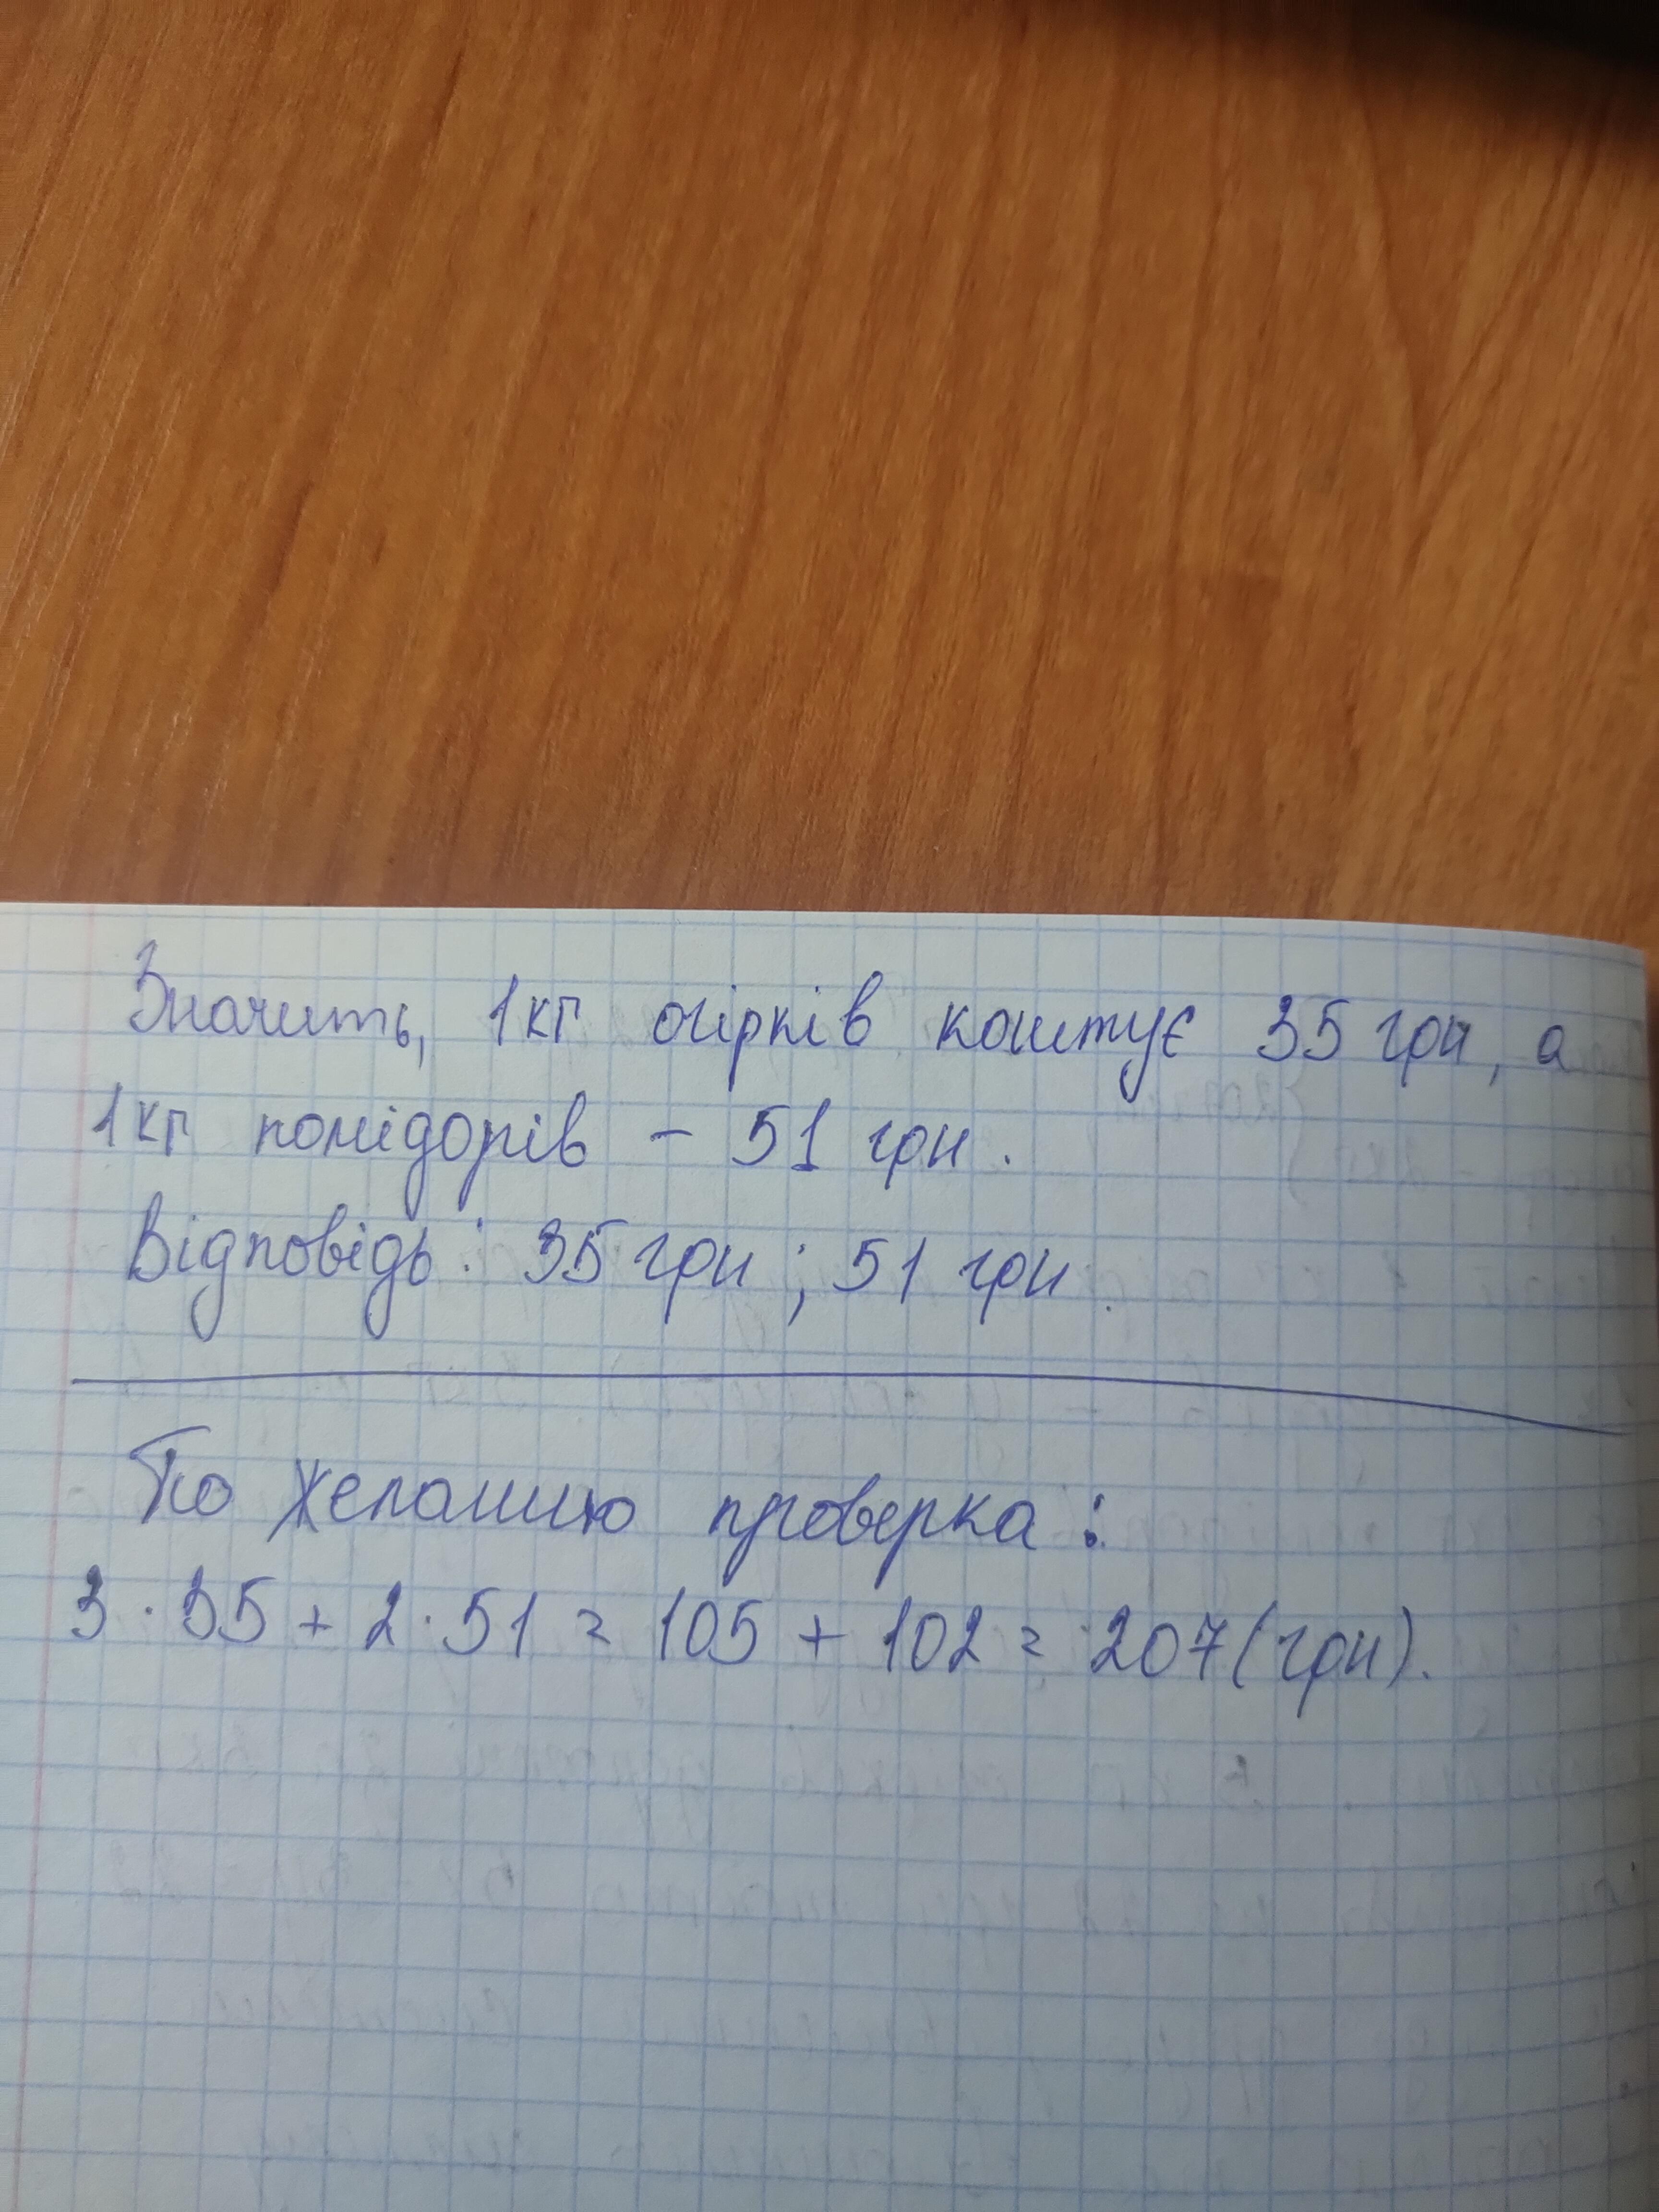 Значить, 1кг огірків коштує 35 грн, а
1кг помідорів – 51 грн.
Відповідь: 35 грн; 51 грн.
По желанию проверка:
3 · 35 + 2 · 51 = 105 + 102 = 207 (грн).